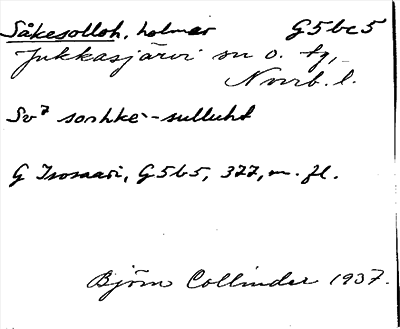 Såkesolloh, holmar G5bc5
Jukkasjärvi sn o. tg,
Norrb. l.
Sv7 soshke·-sulluht
G Isosaari, G5b5, 377, m. fl.
Björn Collinder 1937.